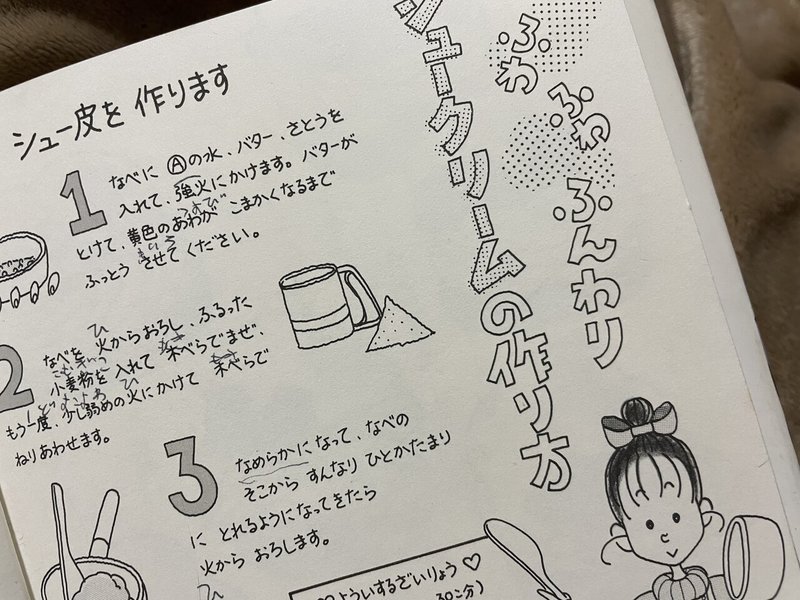 ふわ
ふわ
ふんわり
シュークリームの作り方
シュー皮を作ります
1
なべに Ⓐの水、バター、さとうを
入れて、強火にかけます。バターが
とけて、黄色のあわが こまかくなるまで
ふっとう させてください。
2
ひ
なべを 火からおろし、ふるった
小麦粉を 入れて 木べらでまぜ、
ひ
もう一度、少し弱めの火にかけて 木べらで
ねりあわせます。
3
なめらかになって、なべの
そこから すんなり ひとかたまり
に とれるようになってきたら
火から おろします。
ひ
よういするざいりょう♡
30こ分)